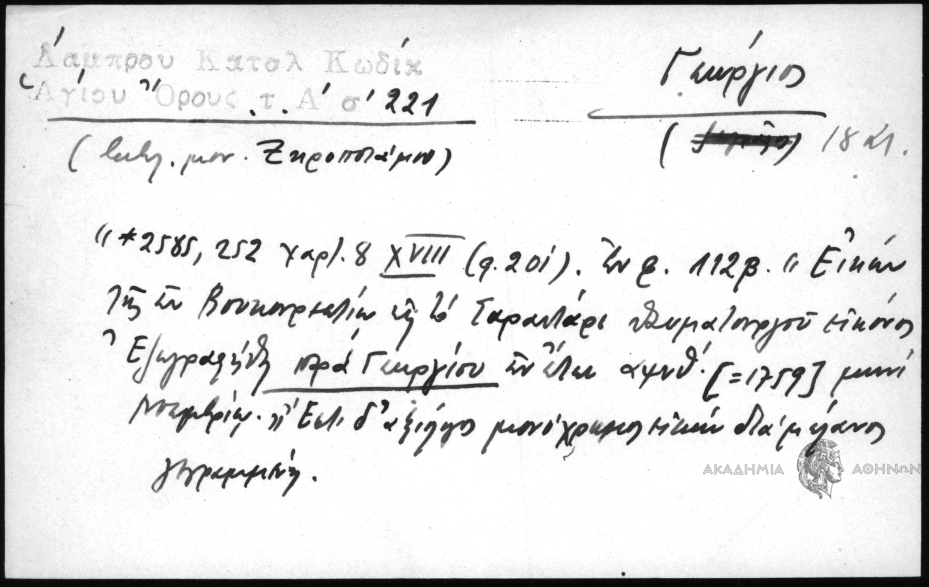 Λάμπρου Κατάλ Κωδίκ
Ἁγίου Ὄρους τ. Α' σ' 221
( μον. Ξηροποτάμου)
Γεώργιος
( ) 18 αι.
"*2585, 252 χαρτ. 8 XVIII (φ. 201). Ἐν φ. 112β. " Εἰκὼν
τῆς ἐν Βουκουρεστίῳ εἰς τὸ Σαραντάρι θαυματουργοῦ εἰκόνος
Ἐζωγραφήθη παρά Γεωργίου ἐν ἔτει αψνθ'. [=1759] μηνὶ
Νοεμβρίῳ." Ἔστι δ' ἀξιόλογος μονόχρωμος εἰκὼν διὰ μελάνος
γεγραμμένη.
ΑΚΑΔΗΜΙΑ ΑΘΗΝΩΝ